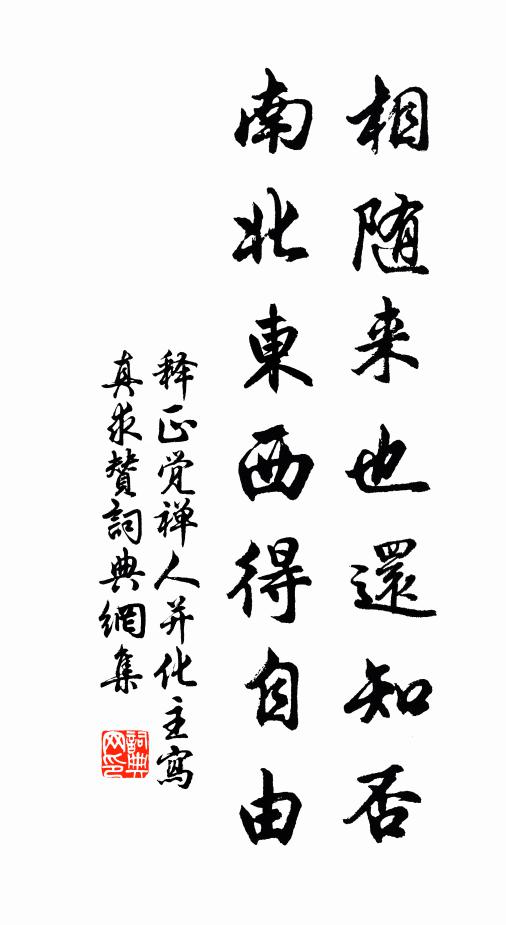 相随来也還知否
南北東西得自由
释正觉禅人并化主寫
真求贊詞典網集
詞典网印